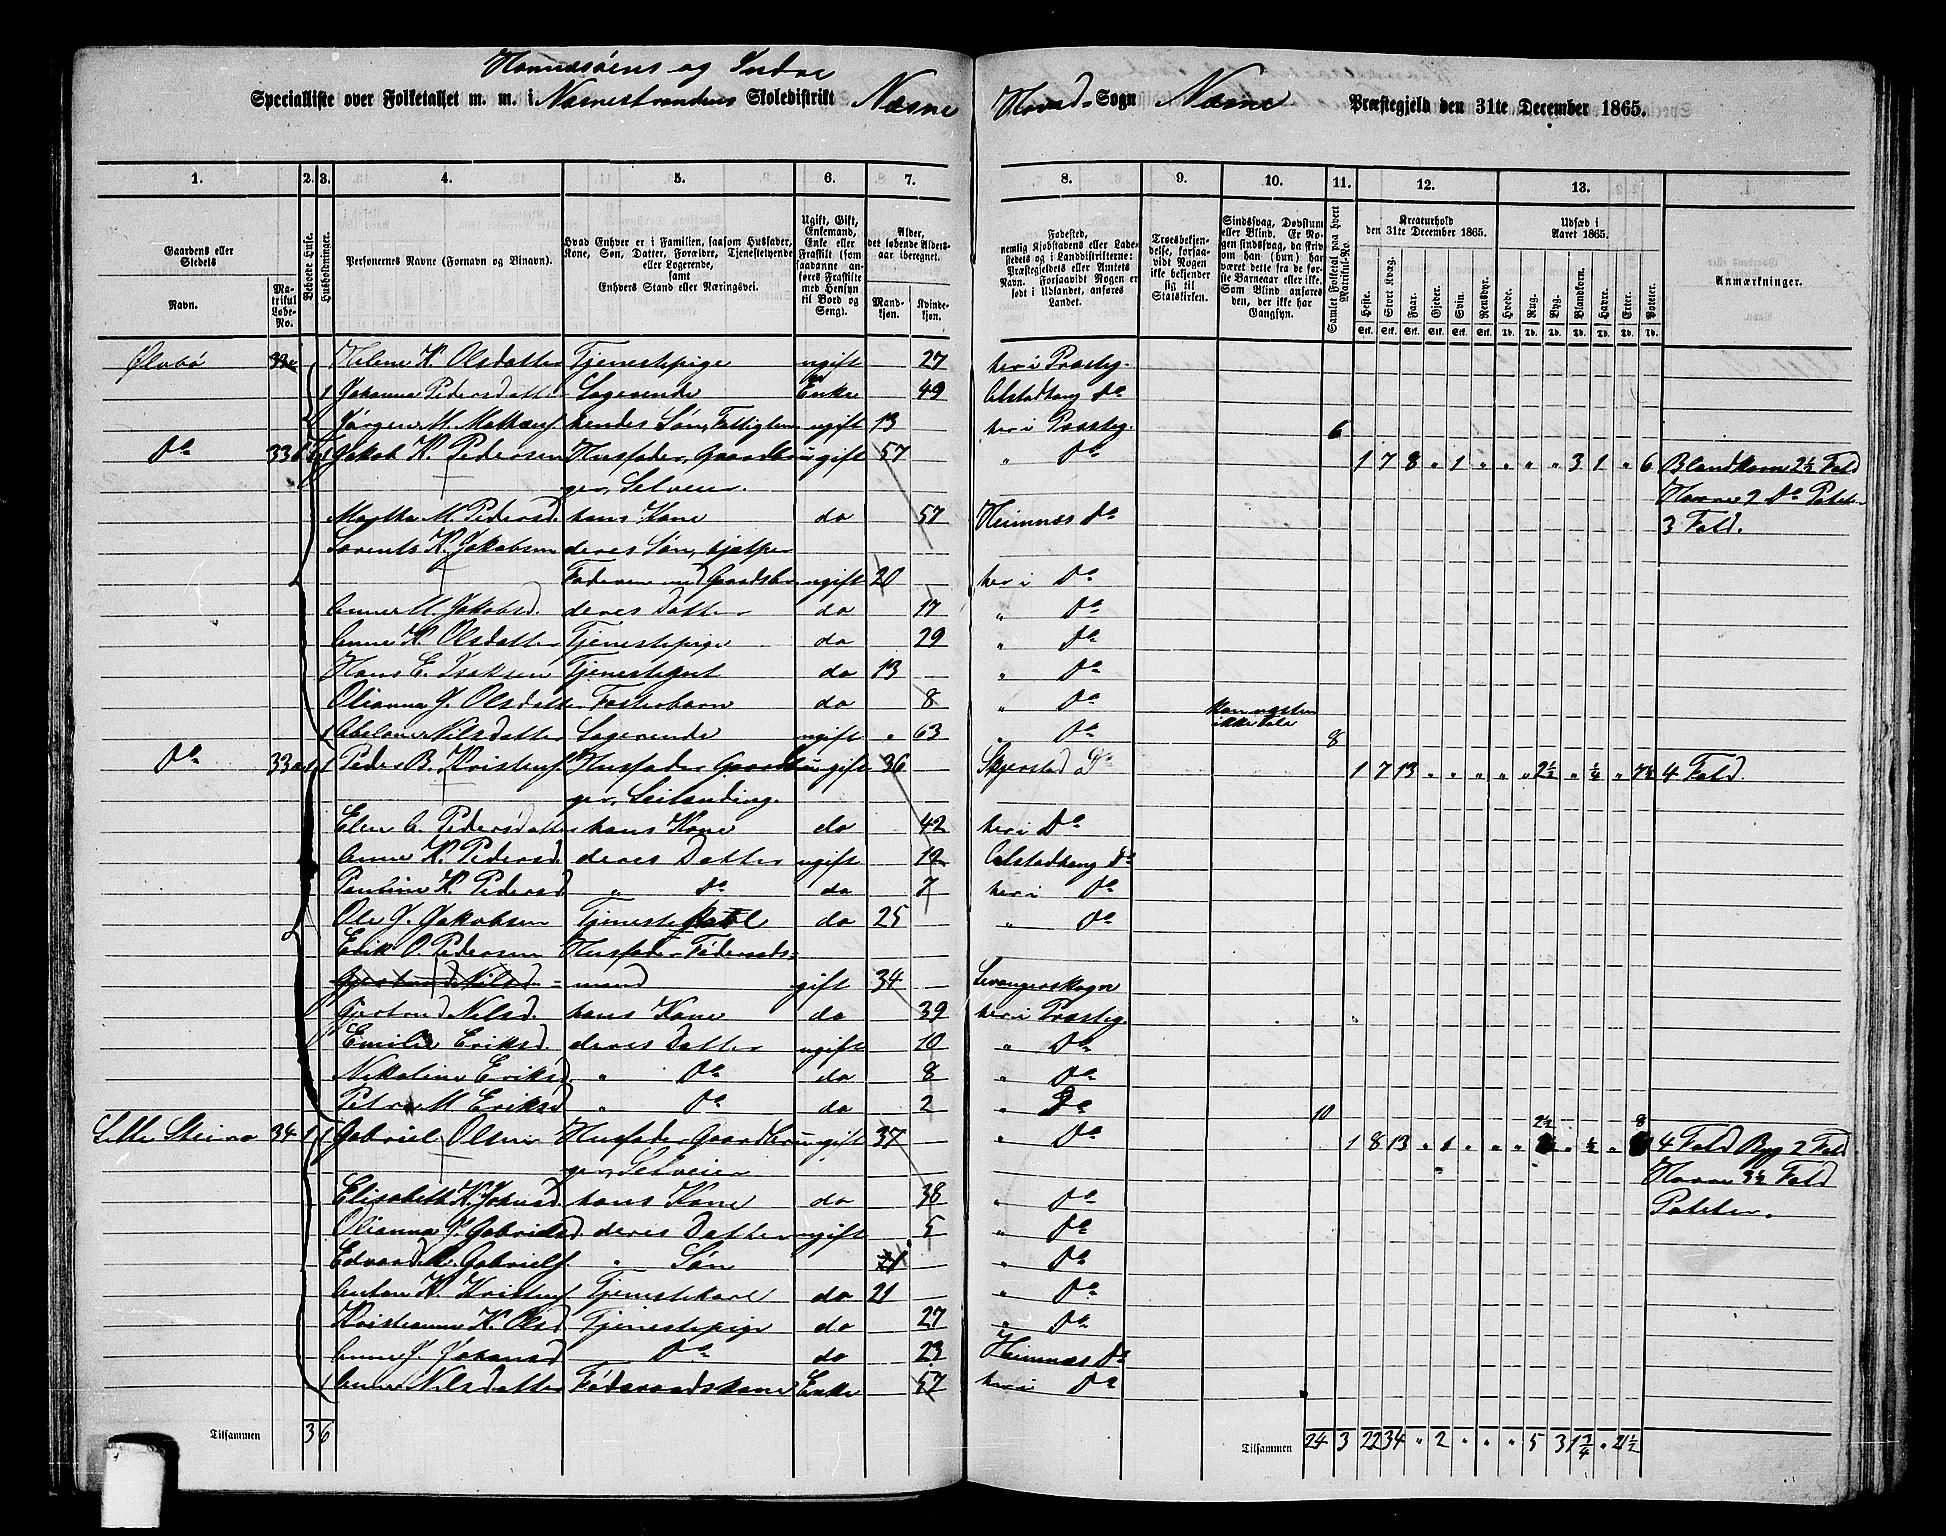 Havnesøens og Indre
Specialliste over Folketallet m. m. i Næsnestrandens Skoledistrikt Næsne Hoved Sogn Næsne Præstegjeld den 31te December 1865.
1. 2. 3. 4. 5. 6. 7. 8. 9. 10. 11. 12. 13.
Gaardens eller Stedets Navn. Matrikul Løbe-No. Beboede Huse. Husholdninger. Personernes Navne (Fornavn og Binavn). Hvad Enhver er i Familien, saasom Husfader, Kone, Søn, Datter, Forældre, Tjenestetyende eller Logerende, samt Enhvers Stand eller Næringsvei. Ugift, Gift, Enkemand, Enke eller Fraskilt (som saadanne anføres Fraskilte med Hensyn til Bord og Seng). Alder, det løbende Aldersaar iberegnet. Mandkjøn. Kvindekjøn.
Fødested, nemlig Kjøbstadens eller Ladestedets og i Landdistrikterne: Præstegjeldets eller Amtets Navn. Forsaavidt Nogen er født i Udlandet, anføres Landet. Troesbekjendelse, forsaavidt Nogen ikke bekjender sig til Statskirken. Sindssvag, Døvstum eller Blind. Er Nogen sindssvag, da skrives om han (hun) har været dette fra de første Barneaar eller ikke. Som Blind anføres den, der ikke har Gangsyn. Samlet Folketal paa hvert Matrikul-No. Kreaturhold den 31te December 1865. Heste. Stort Kvæg. Faar. Gjeder. Svin. Rensdyr. Udsæd i Aaret 1865. Hvede. Rug. Byg. Blandkorn. Havre. Erter. Poteter. Anmærkninger.
Helene K. Olsdatter Tjenestepige ugift 27 her i Præsteg.
1 Johanna Pedersdatter Logerende Enke 49 Alstadhaug Do
hendes Søn, ugift 13 her i Præsteg. 6
Do 33 1 1 Jakob K. Pedersen Husfader, Gaardbru gift 57 " Do 1 7 8 " 1 " " " " 3 1 " 6 Blandkorn 2½ Fold
ger, Selveier. Havre 2 Do Potet
Martha M. Pedersd. hans Kone do 57 Heimnæs Do 3 Fold.
Lorents K. Jakobsen deres Søn, hjelper
Faderen med Gaardsbr ugift 20 her i Do
Anne M. Jakobsd. deres Datter do 17 " Do
Anne K. Olsdatter Tjenestepige do 29 " Do
Hans E. Isaksen Tjenestegut do 13 " Do
Olianna J. Olsdatter Fosterbarn do 8 " Do kan næsten
1 Nilsdatter Logerende ugift " 63 " Do ikke tale 8
Do 33 1 1 Peder B. Kristens. Husfader Gaardbru gift 36 Skjerstad Do 1 7 13 " " " " " 2½ " ¼ " 7½ 4 Fold.
ger, Leilænding.
Elen A. Pedersdatter hans Kone do 42 her i Do
Anne K. Pedersd. deres Datter ugift 12 Alstadhaug Do
Pauline K. Pedersd. " Do do 7 her i Do
Ole J. Jakobsen Tjenestekarl do 25 " Do
Erik O. Pedersen Husfader Føderaads=
Gjertrud Nilsd. mand gift 34 Levangerskogn
Gjertrud Nilsd. hans Kone do 39 her i Præsteg.
Emilie Eriksd. deres Datter ugift 10 " Do
Nikoline Eriksd. " Do do 8 " Do
Petra M. Eriksd. " Do do 2 " Do 10
34 1 1 Gabriel Olsen Husfader Gaardbru gift 37 " Do 1 8 13 " 1 " " " 2½ " ½ " 8 4 Fold Byg 2 Fold
ger, Selveier Havre 3½ Fold
Elisabeth K. hans Kone do 38 " Do Poteter.
Olianna J. Gabrielsd. deres Datter ugift 5 " Do
Edvard M. Gabriels. " Søn 1 " Do
Anton K. Kristens. Tjenestekarl do 21 " Do
Kristianna K. Olsd. Tjenestepige do 27 " Do
Anne J. Johansd. Do do 23 Heimnæs Do
1 Anne Nilsdatter Føderaadskone Enke 57 her i Do
Tilsammen 3 6 Tilsammen 24 3 22 34 " 2 " " " 5 3 1¾ " 21½